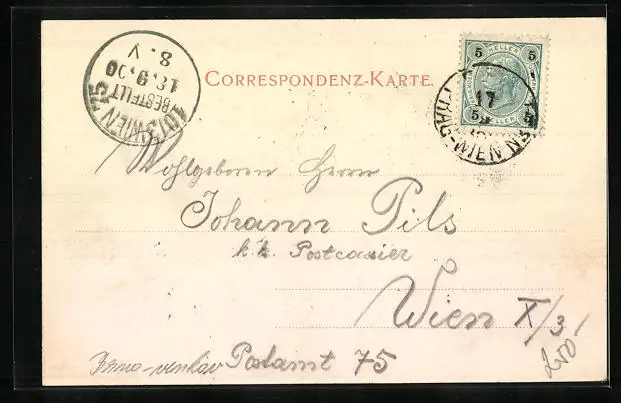 10/3 WIEN 75
BESTELLT
18.9.00
8. V
CORRESPONDENZ-KARTE.
5 HELLER 5
5 HELLER 5
17
PRAG-WIEN
Wohlgeboren Herrn
Johann Pils
k. k. Postcassier
Wien X/3
Postamt 75